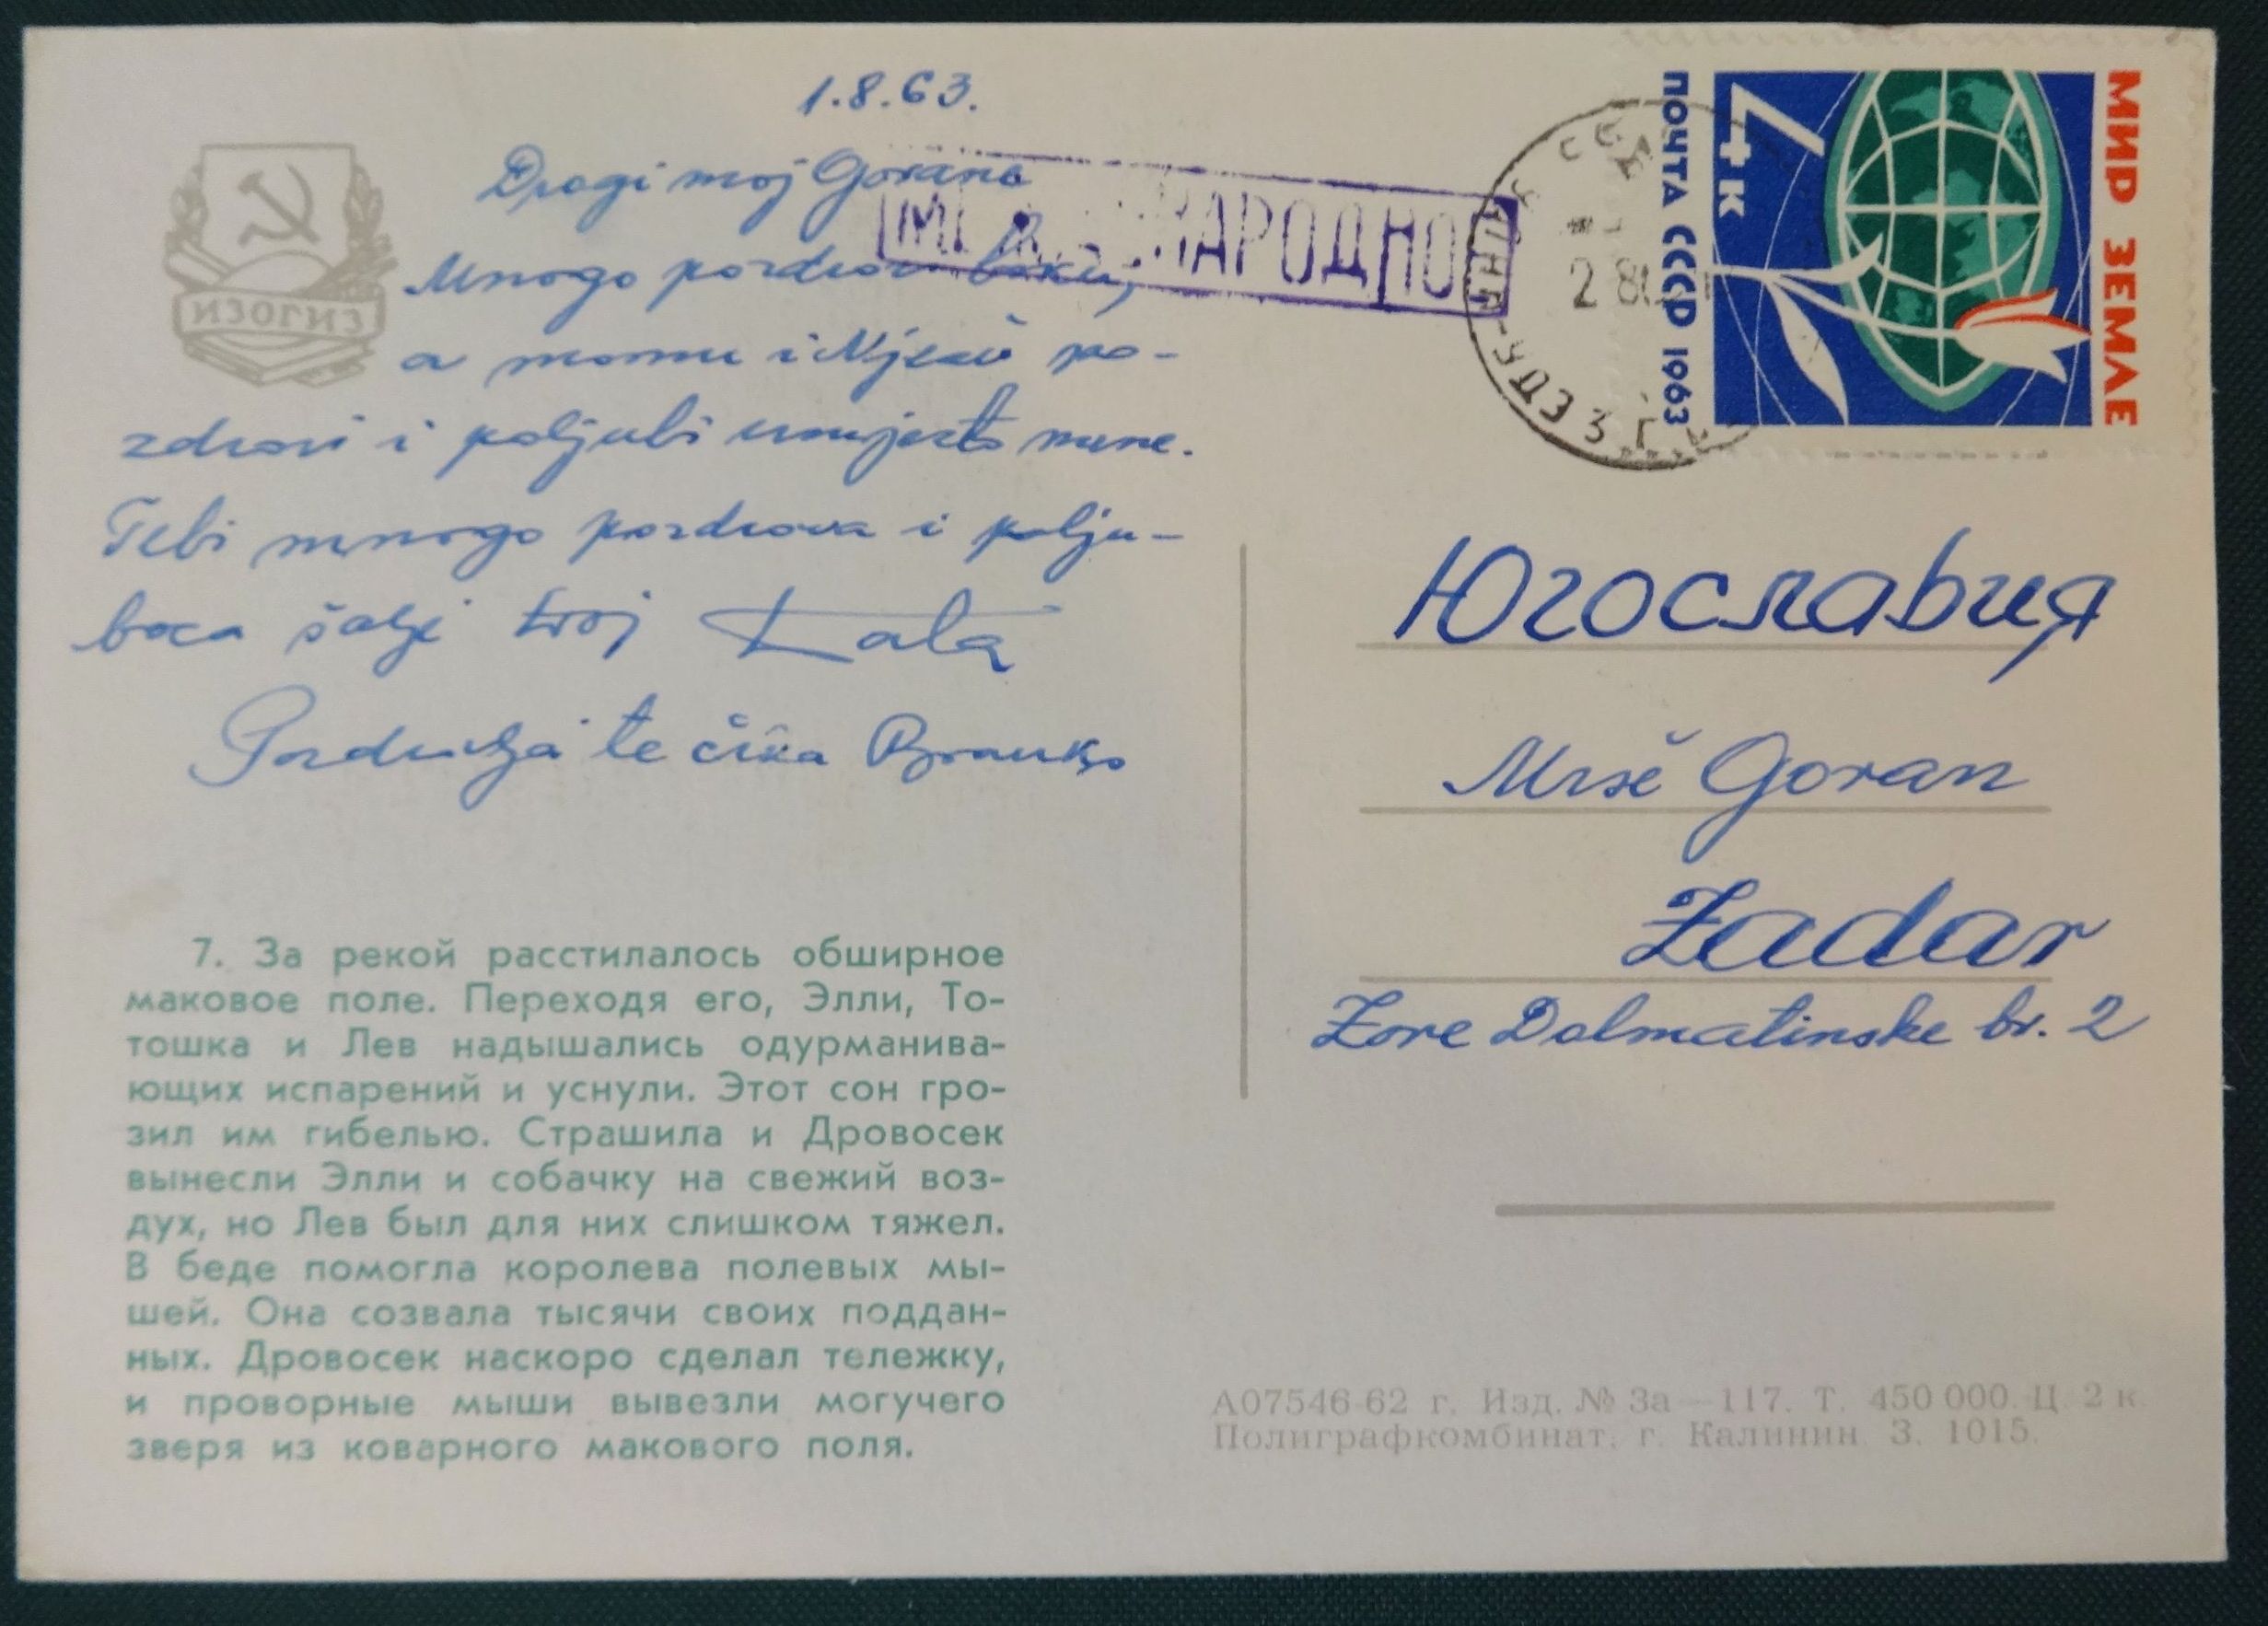 1.8.63.
Dragi moj Gorane
Mnogo pozdravi baku,
a mamu i Njeću po-
zdravi i poljubi umjesto mene.
Tebi mnogo pozdrava i polju-
baca šalje tvoj Tata
Pozdravlja te čika Branko
ИЗОГИЗ
МЕЖДУНАРОДНОЕ
СССР
УЛАН-УДЭ
2 8
МИР ЗЕМЛЕ
4к
ПОЧТА СССР 1963
Югославия
Mrše Goran
Zadar
Zore Dalmatinske br. 2
7. За рекой расстилалось обширное
маковое поле. Переходя его, Элли, То-
тошка и Лев надышались одурманива-
ющих испарений и уснули. Этот сон гро-
зил им гибелью. Страшила и Дровосек
вынесли Элли и собачку на свежий воз-
дух, но Лев был для них слишком тяжел.
В беде помогла королева полевых мы-
шей. Она созвала тысячи своих поддан-
ных. Дровосек наскоро сделал тележку,
и проворные мыши вывезли могучего
зверя из коварного макового поля.
А07546-62 г. Изд. № 3а—117. Т. 450 000. Ц. 2 к.
Полиграфкомбинат, г. Калинин. З. 1015.